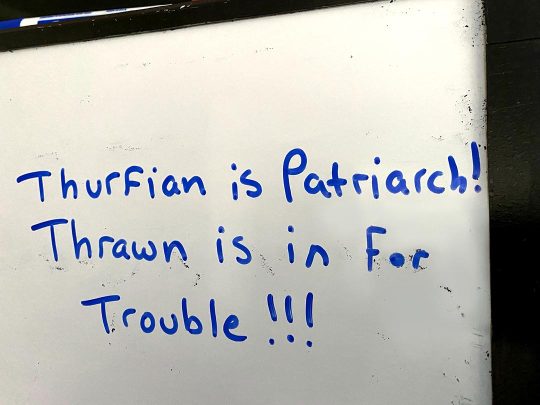 Thurfian is Patriarch!
Thrawn is in for
Trouble !!!